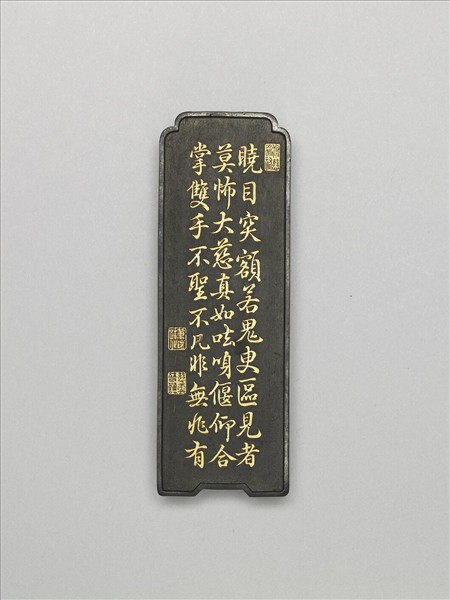 曉目突額若鬼臾區見者
莫怖大慈真如呿偃仰合
掌雙手不聖不凡非無非有